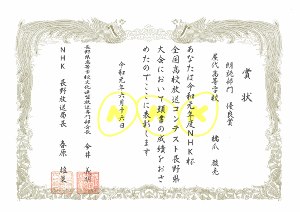 賞状
朗読部門 優良賞
屋代高等学校
橋爪
あなたは令和元年度NHK杯
全国高校放送コンテスト長野県
大会において頭書の成績をおさ
めたのでここに表彰します
令和元年六月十六日
長野県高等学校文化連盟放送専門部会長 今井
NHK 長野放送局長 春原